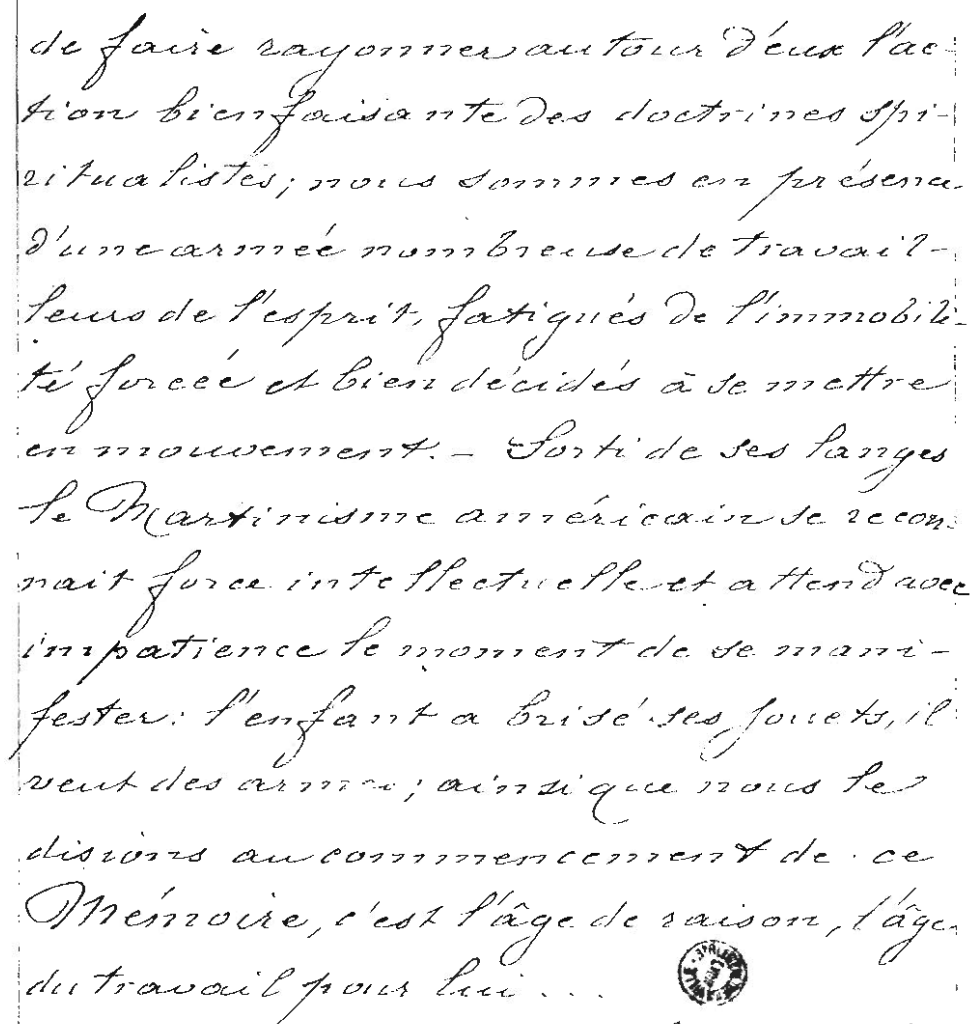 de faire rayonner autour d'eux l'ac-
tion bienfaisante des doctrines spi-
ritualistes; nous sommes en présence
d'une armée nombreuse de travail-
leurs de l'esprit, fatigués de l'immobili-
té forcée et bien décidés à se mettre
en mouvement. – Sorti de ses langes
le Martinisme américain se recon-
nait force intellectuelle et attend avec
impatience le moment de se mani-
fester: l'enfant a brisé ses jouets, il
veut des armes; ainsi que nous le
disions au commencement de ce
Mémoire, c'est l'âge de raison, l'âge
du travail pour lui ...